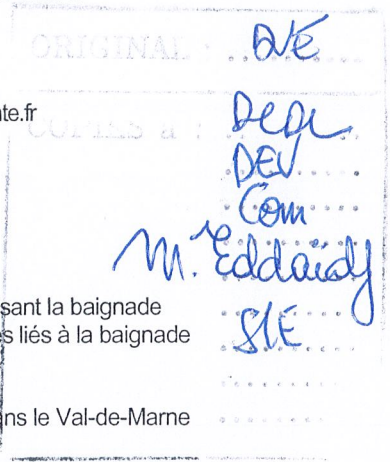 ORIGINAL : DVE
te.fr
COPIES à :
DEV
Com
M. Eddaïdj
sant la baignade
s liés à la baignade
SIE
ns le Val-de-Marne